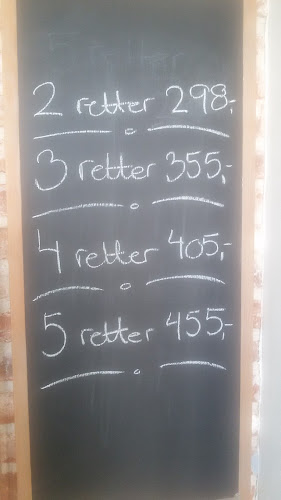 5 retter
2 retter 298,-
3 retter 355,-
4 retter 405,-
5 retter 455,-